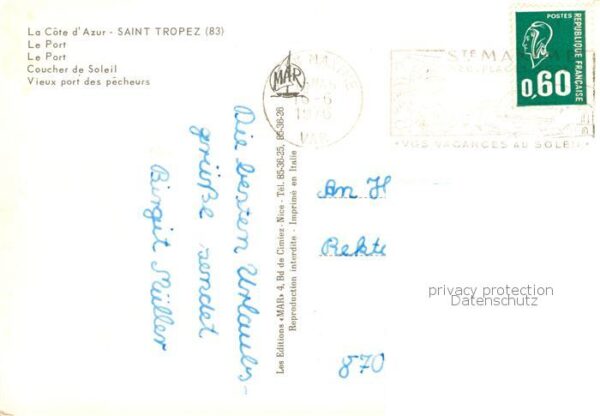 La Côte d'Azur - SAINT TROPEZ (83)
Le Port
Le Port
Coucher de Soleil
Vieux port des pêcheurs
Die besten Urlaubs-
grüße sendet
Birgit Müller
MAR
Les Editions «MAR» 4, Bd de Cimiez - Nice - Tél. 85-36-25, 85-36-26
Reproduction interdite - Imprimé en Italie
16-6
1976
VAR
STE MAXIME
VOS VACANCES AU SOLEIL
POSTES
0,60
REPUBLIQUE FRANÇAISE
An H
Rekte
870
privacy protection
Datenschutz